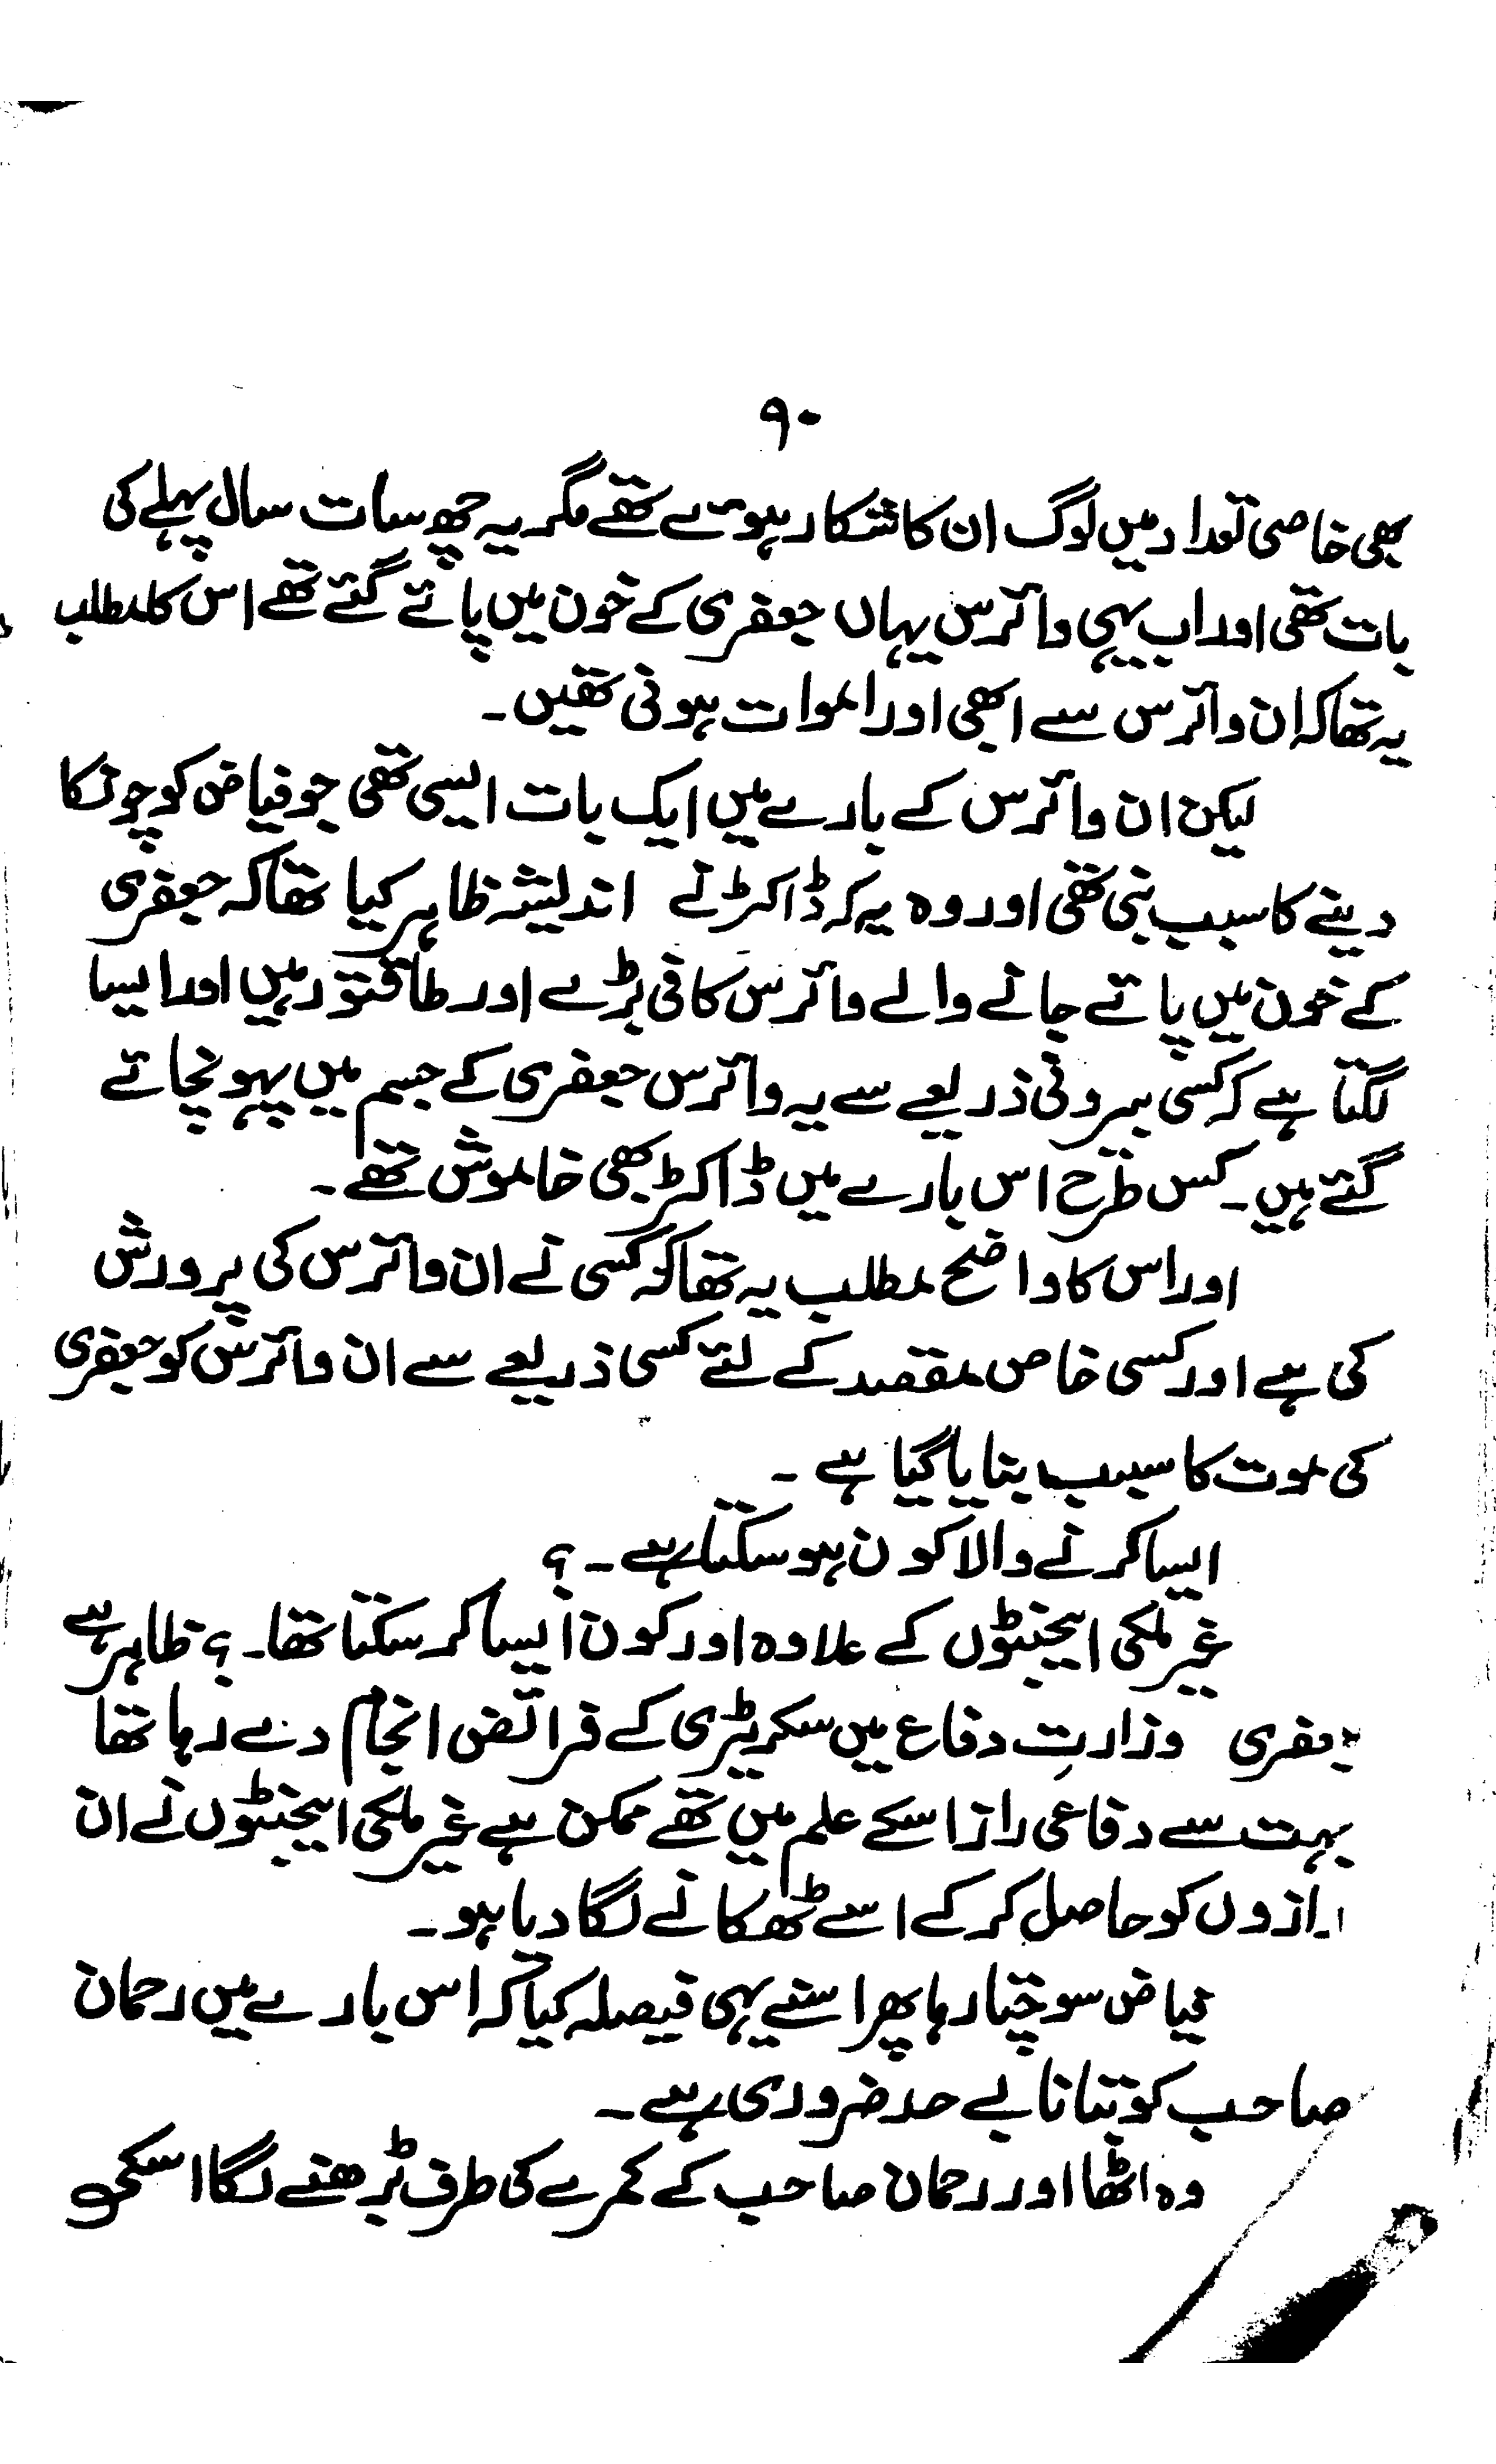 ۹۰
بھی خاصی تعداد میں لوگ ان کا شکار ہوئے تھے مگر یہ چھ سات سال پہلے کی
بات تھی اور اب یہی وائرس یہاں جعفری کے خون میں پائے گئے تھے اس کا مطلب
یہ تھا کہ ان وائرس سے ابھی اور اموات ہونی تھیں۔
لیکن ان وائرس کے بارے میں ایک بات ایسی تھی جو فیاض کو چونکا
دینے کا سبب بنی تھی اور وہ یہ کہ ڈاکڑنے اندیشہ ظاہر کیا تھا کہ جعفری
کے خون میں پائے جانے والے وائرس کافی بڑے اور طاقتور ہیں اور ایسا
لگتا ہے کہ کسی بیرونی ذریعے سے یہ وائرس جعفری کے جسم میں پہونچائے
گئے ہیں۔ کس طرح اس بارے میں ڈاکڑ بھی خاموش تھے۔
اور اس کا واضح مطلب یہ تھا کہ کسی نے ان وائرس کی پرورش
کی ہے اور کسی خاص مقصد کے لئے کسی ذریعے سے ان وائرس کو جعفری
کی موت کا سبب بنایا گیا ہے ۔
ایسا کرنے والا کون ہو سکتا ہے ۔ ؟
غیر ملکی ایجنٹوں کے علاوہ اور کون ایسا کر سکتا تھا۔ ؟ ظاہر ہے
جعفری وزارتِ دفاع میں سکریٹری کے فرائض انجام دے رہا تھا
بہت سے دفاعی راز اسکے علم میں تھے ممکن ہے غیر ملکی ایجنٹوں نے ان
رازوں کو حاصل کر کے اسے ٹھکانے لگا دیا ہو۔
فیاض سوچتا رہا پھر اسنے یہی فیصلہ کیا کہ اس بارے میں رحمان
صاحب کو بتانا بے حد ضروری ہے۔
وہ اٹھا اور رحمان صاحب کے کمرے کی طرف بڑھنے لگا اسکو